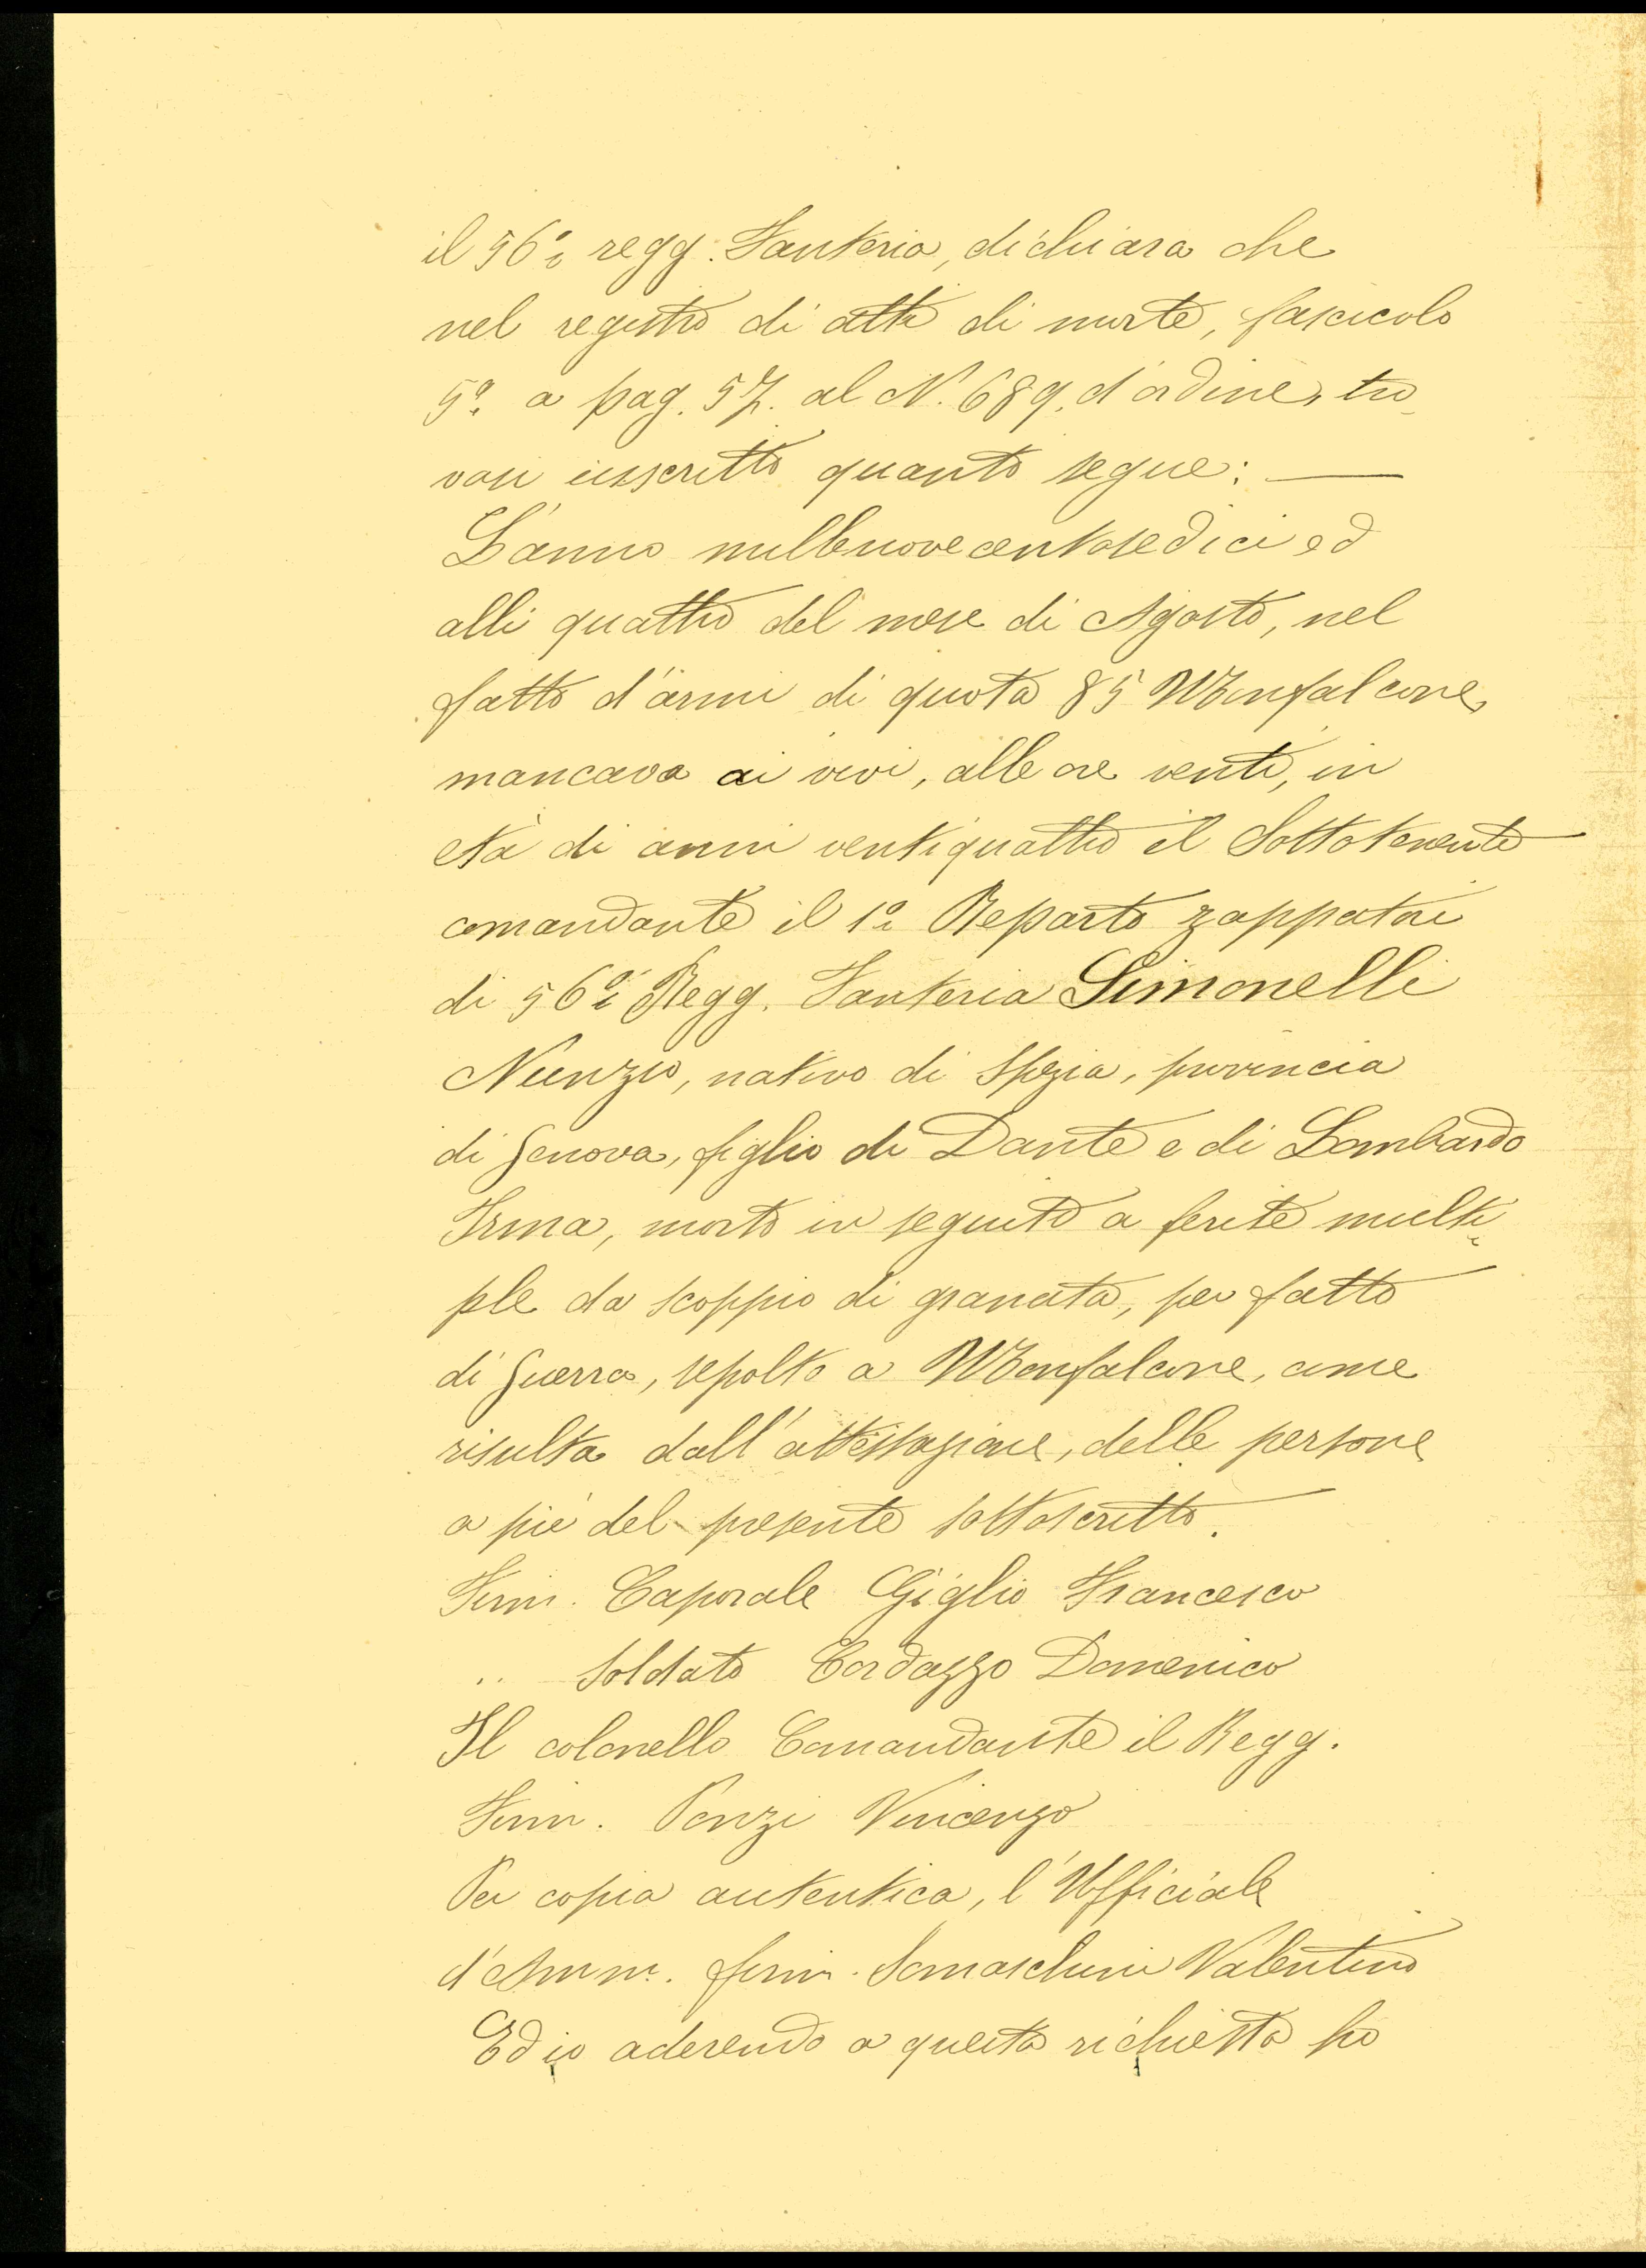 il 56° regg. Fanteria, dichiara che
nel registro di atti di morte, fascicolo
5° a pag. 57. al N. 689. d'ordine, tro
vasi inscritto quanto segue: —
L'anno millenovecentosedici ed
alli quattro del mese di Agosto, nel
fatto d'armi di quota 85 Monfalcone,
mancava ai vivi, alle ore venti, in
età di anni ventiquattro il Sottotenente
comandante il 1° Reparto zappatori
di 56° Regg. Fanteria Simonelli
Nunzio, nativo di Spezia, provincia
di Genova, figlio di Dante e di Lombardo
Irma, morto in seguito a ferite multi
ple da scoppio di granata, per fatto
di Guerra, sepolto a Monfalcone, come
risulta dall'attestazione, delle persone
a pié del presente sottoscritto.
Firm. Caporale Giglio Francesco
.. Soldato Cordazzo Domenico
Il colonello Comandante il Regg.
Firm. Ponzi Vincenzo
Per copia autentica, l'Ufficiale
d'Amm. firm. Somaschini Valentino
Ed io aderendo a questa richiesta ho